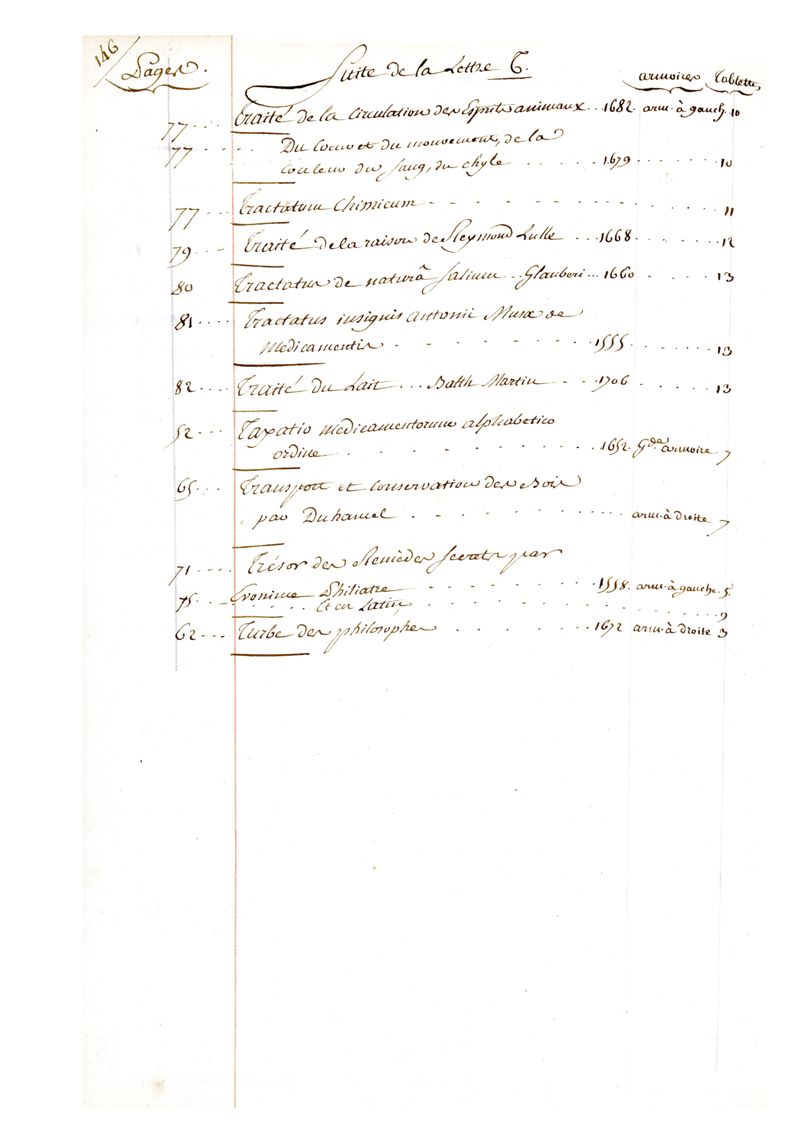 146
Pages. Suite de la Lettre T. armoires Tablettes
77 .... Traité de la circulation des Esprits animaux .. 1682. arm. à gauch. 10
77 .... Du Coeur et du mouvement, de la
couleur du sang, du chyle ..... 1679 ...... 10
77 ... Tractatum Chimicum - - - - - - - - 11
79 .... Traité de la raison de Reymond Lulle ... 1668 ...... 12
80 Tractatus de naturâ salium .. Glauberi ... 1660 ...... 13
81 .... Tractatus insignis antonii Musæ de
Medicamentis - - - - - - 1555 ...... 13
82 .... Traité du Lait ... Balth Martin ... 1706 ...... 13
52 ... Taxatio medicamentorum alphabetico
ordine - - - - - - 1652. Gde. armoire 7
65 ... Transport et conservation des Bois
par Duhamel ............ arm. à droite 7
71 .... Trésor des Remèdes secrets par
75 - Evonime Philiatre - - - - - - 1558. arm. à gauche. 5.
Et en Latin, - - - - - - 9
62 ... Turbe des philosophes ...... 1672 arm. à droite 3